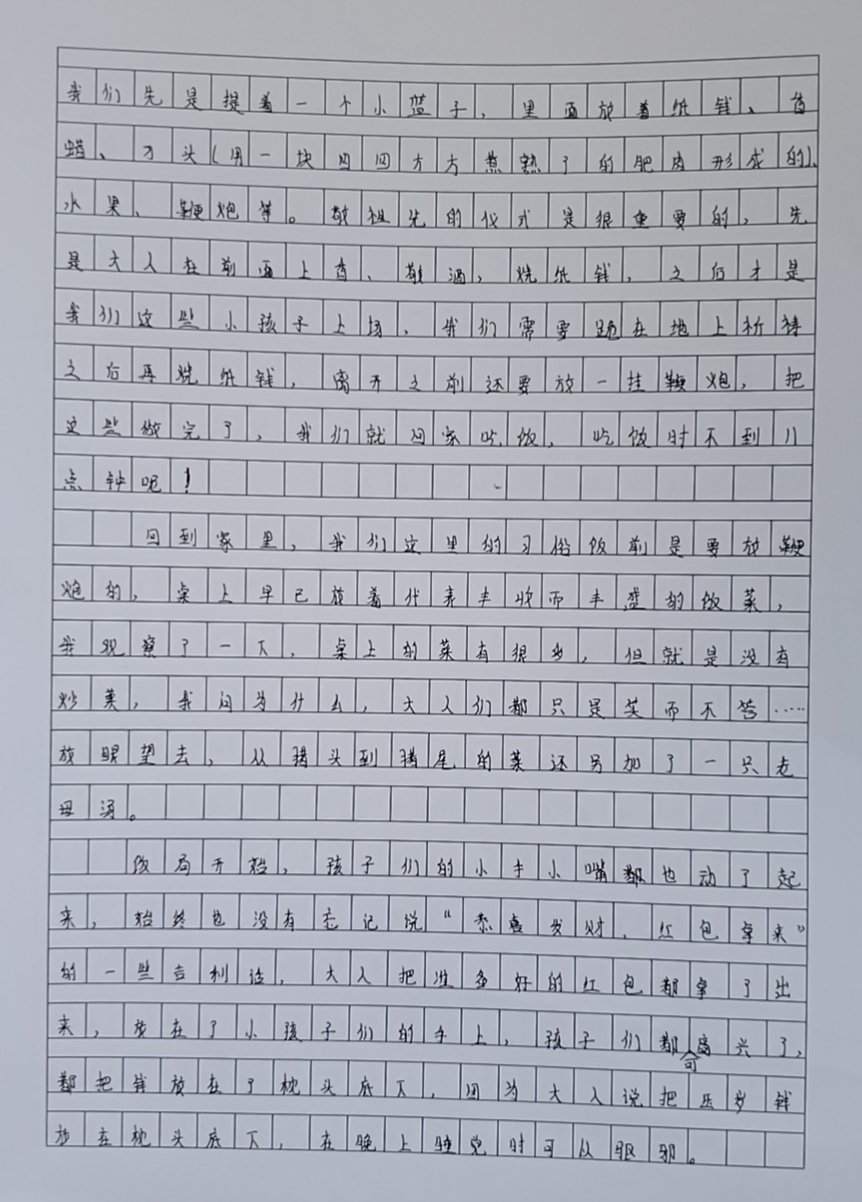 我们先是提着一个小篮子，里面放着纸钱、香
蜡、刀头(用一块四四方方煮熟了的肥肉形成的)、
水果、鞭炮等。敬祖先的仪式是很重要的，先
是大人在前面上香、敬酒，烧纸钱，之后才是
我们这些小孩子上场，我们需要跪在地上祈祷
之后再烧纸钱，离开之前还要放一挂鞭炮，把
这些做完了，我们就回家吃饭，吃饭时不到八
点钟呢！
回到家里，我们这里的习俗饭前是要放鞭
炮的，桌上早已放着代表丰收而丰盛的饭菜，
我观察了一下，桌上的菜有很多，但就是没有
炒菜，我问为什么，大人们都只是笑而不答……
放眼望去，从猪头到猪尾的菜还另加了一只老
母汤。
饭局开始，孩子们的小手小嘴都也动了起
来，始终也没有忘记说“恭喜发财，红包拿来”
的一些吉利话，大人把准备好的红包都拿了出
来，放在了小孩子们的手上，孩子们都可高兴了，
都把钱放在了枕头底下，因为大人说把压岁钱
放在枕头底下，在晚上睡觉时可从驱邪。